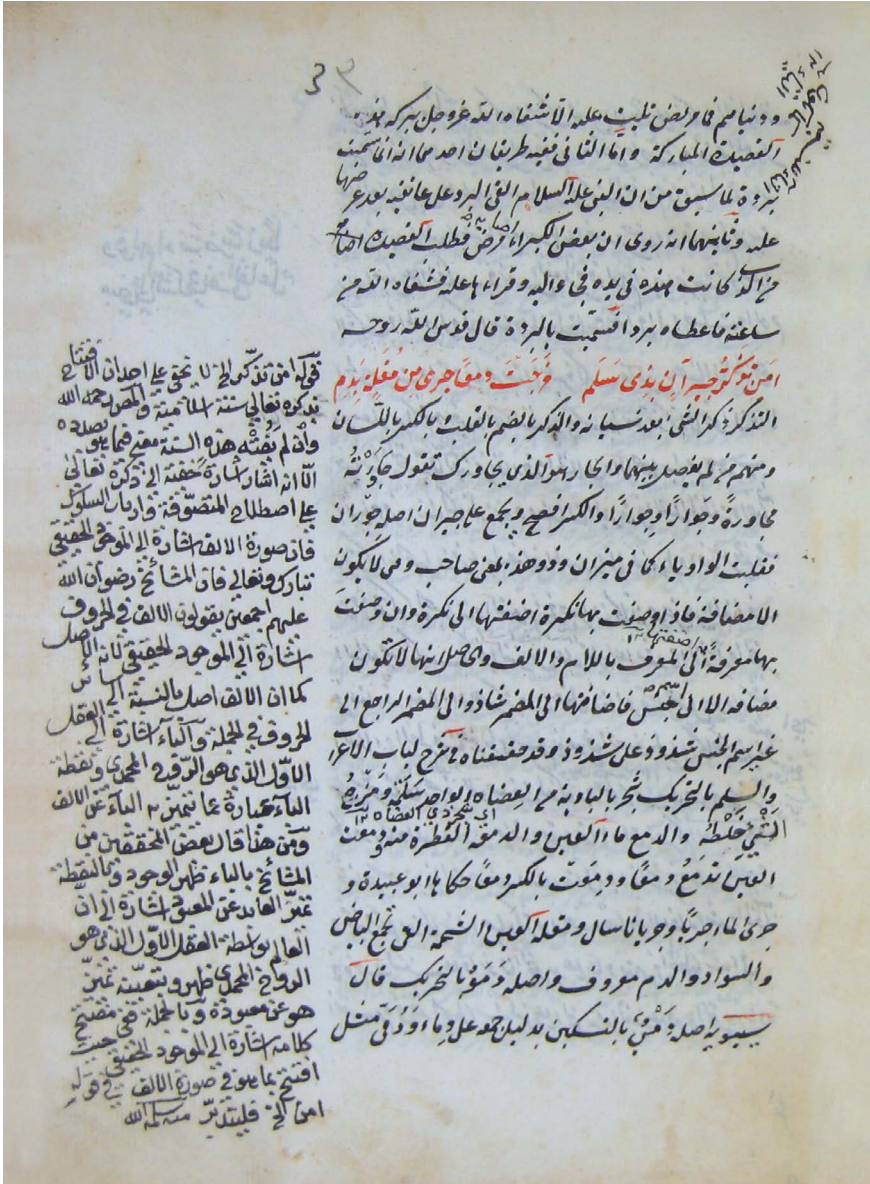 ودنياهم فما مريض تليت عليه الا شفاه الله عز وجل ببركة هذه
القصيدة المباركة واما الثاني ففيه طريقان احدهما انه انما سميت
بردة لما سبق من ان النبي عليه السلام القى البرد على عاتقيه بعد عرضها
عليه وثانيهما انه روى ان بعض الكبراء مرض فطلب القصيدة
من الذي كانت هذه في يده فجاء اليه وقراءها عليه فشفاه الله من
ساعته فاعطاه بردا فسميت بالبردة قال قدس الله روحه
امن تذكر جيران بذى سلم مزجت دمعا جرى من مقلة بدم
التذكر ذكر الشئ بعد نسيانه والذكر بالضم بالقلب بالكسر باللسان
ومنهم من لم يفصل بينهما والجار هو الذي يجاورك تقول جاورته
مجاورةً وجوارًا وجُوارًا والكسر افصح ويجمع على جيران اصله جوران
فقلبت الواو ياء كما في ميزان وذو هذه بمعنى صاحب وهي لا يكون
الا مضافة فاذا وصفت بها نكرة اضفتها الى نكرة وان وصفت
بها معرفةً اضفتها الى المعرف باللام والالف والحاصل انها لا تكون
مضافه الا الى اسم جنس فاضافتها الى المضمر شاذ والى المضمر الراجع الى
غير اسم الجنس شذوذ على شذوذ وقد حققناه في شرح لباب الاعراب
والسلم بالتحريك شجر بالبادية من العضاه الواحد سلمة ومزج
الشئ خلطه والدمع ماء العين والدمعة القطرة منه ودمعت
العين تدمع دمعًا ودمعت بالكسر دمعًا حكاها ابو عبيدة و
جرى الماء جريًا وجريانا سال ومقلة العين الشحمة التى تجمع البياض
والسواد والدم معروف واصله دموٌ بالتحريك قال
سيبويه اصله دمى بالتسكين بدليل جمعه على دماء ودمى مثل
قوله امن تذكر الخ لا يخفى على احد ان الافتتاح
بذكره تعالى سنة الامنة والمص رحمه الله
وان لم يفته هذه السنة فيما هو بصدده
الا انه اشار اشارة خفية الى ذكره تعالى
على اصطلاح المتصوفة وارباب السلوك
فان صورة الالف اشارة الى الموجود الحقيقي
تبارك وتعالى فان المشائخ رضوان الله
عليهم اجمعين يقولون الالف في الحروف
اشارة الى الموجود الحقيقي لانه الاصل
كما ان الالف اصل بالنسبة الى سائر
الحروف في الجملة والباء اشارة الى العقل
الاول الذى هو الروح المحمدى ونقطة
الباء عبارة عما تتميز به الباء عن الالف
ومن هنا قال بعض المحققين من
المشائخ بالباء ظهر الوجود وبالنقطة
تميز العابد عن المعبود اشارة الى ان
العالم بواسطة العقل الاول الذى هو
الروح المحمدى ظهر وبتعينه تميز
هو عن معبوده وبالجملة ففى مفتتح
كلامه اشارة الى الموجود الحقيقي حيث
افتتح بما هو في صورة الالف في قوله
امن الخ فليتدبر منه سلمه الله